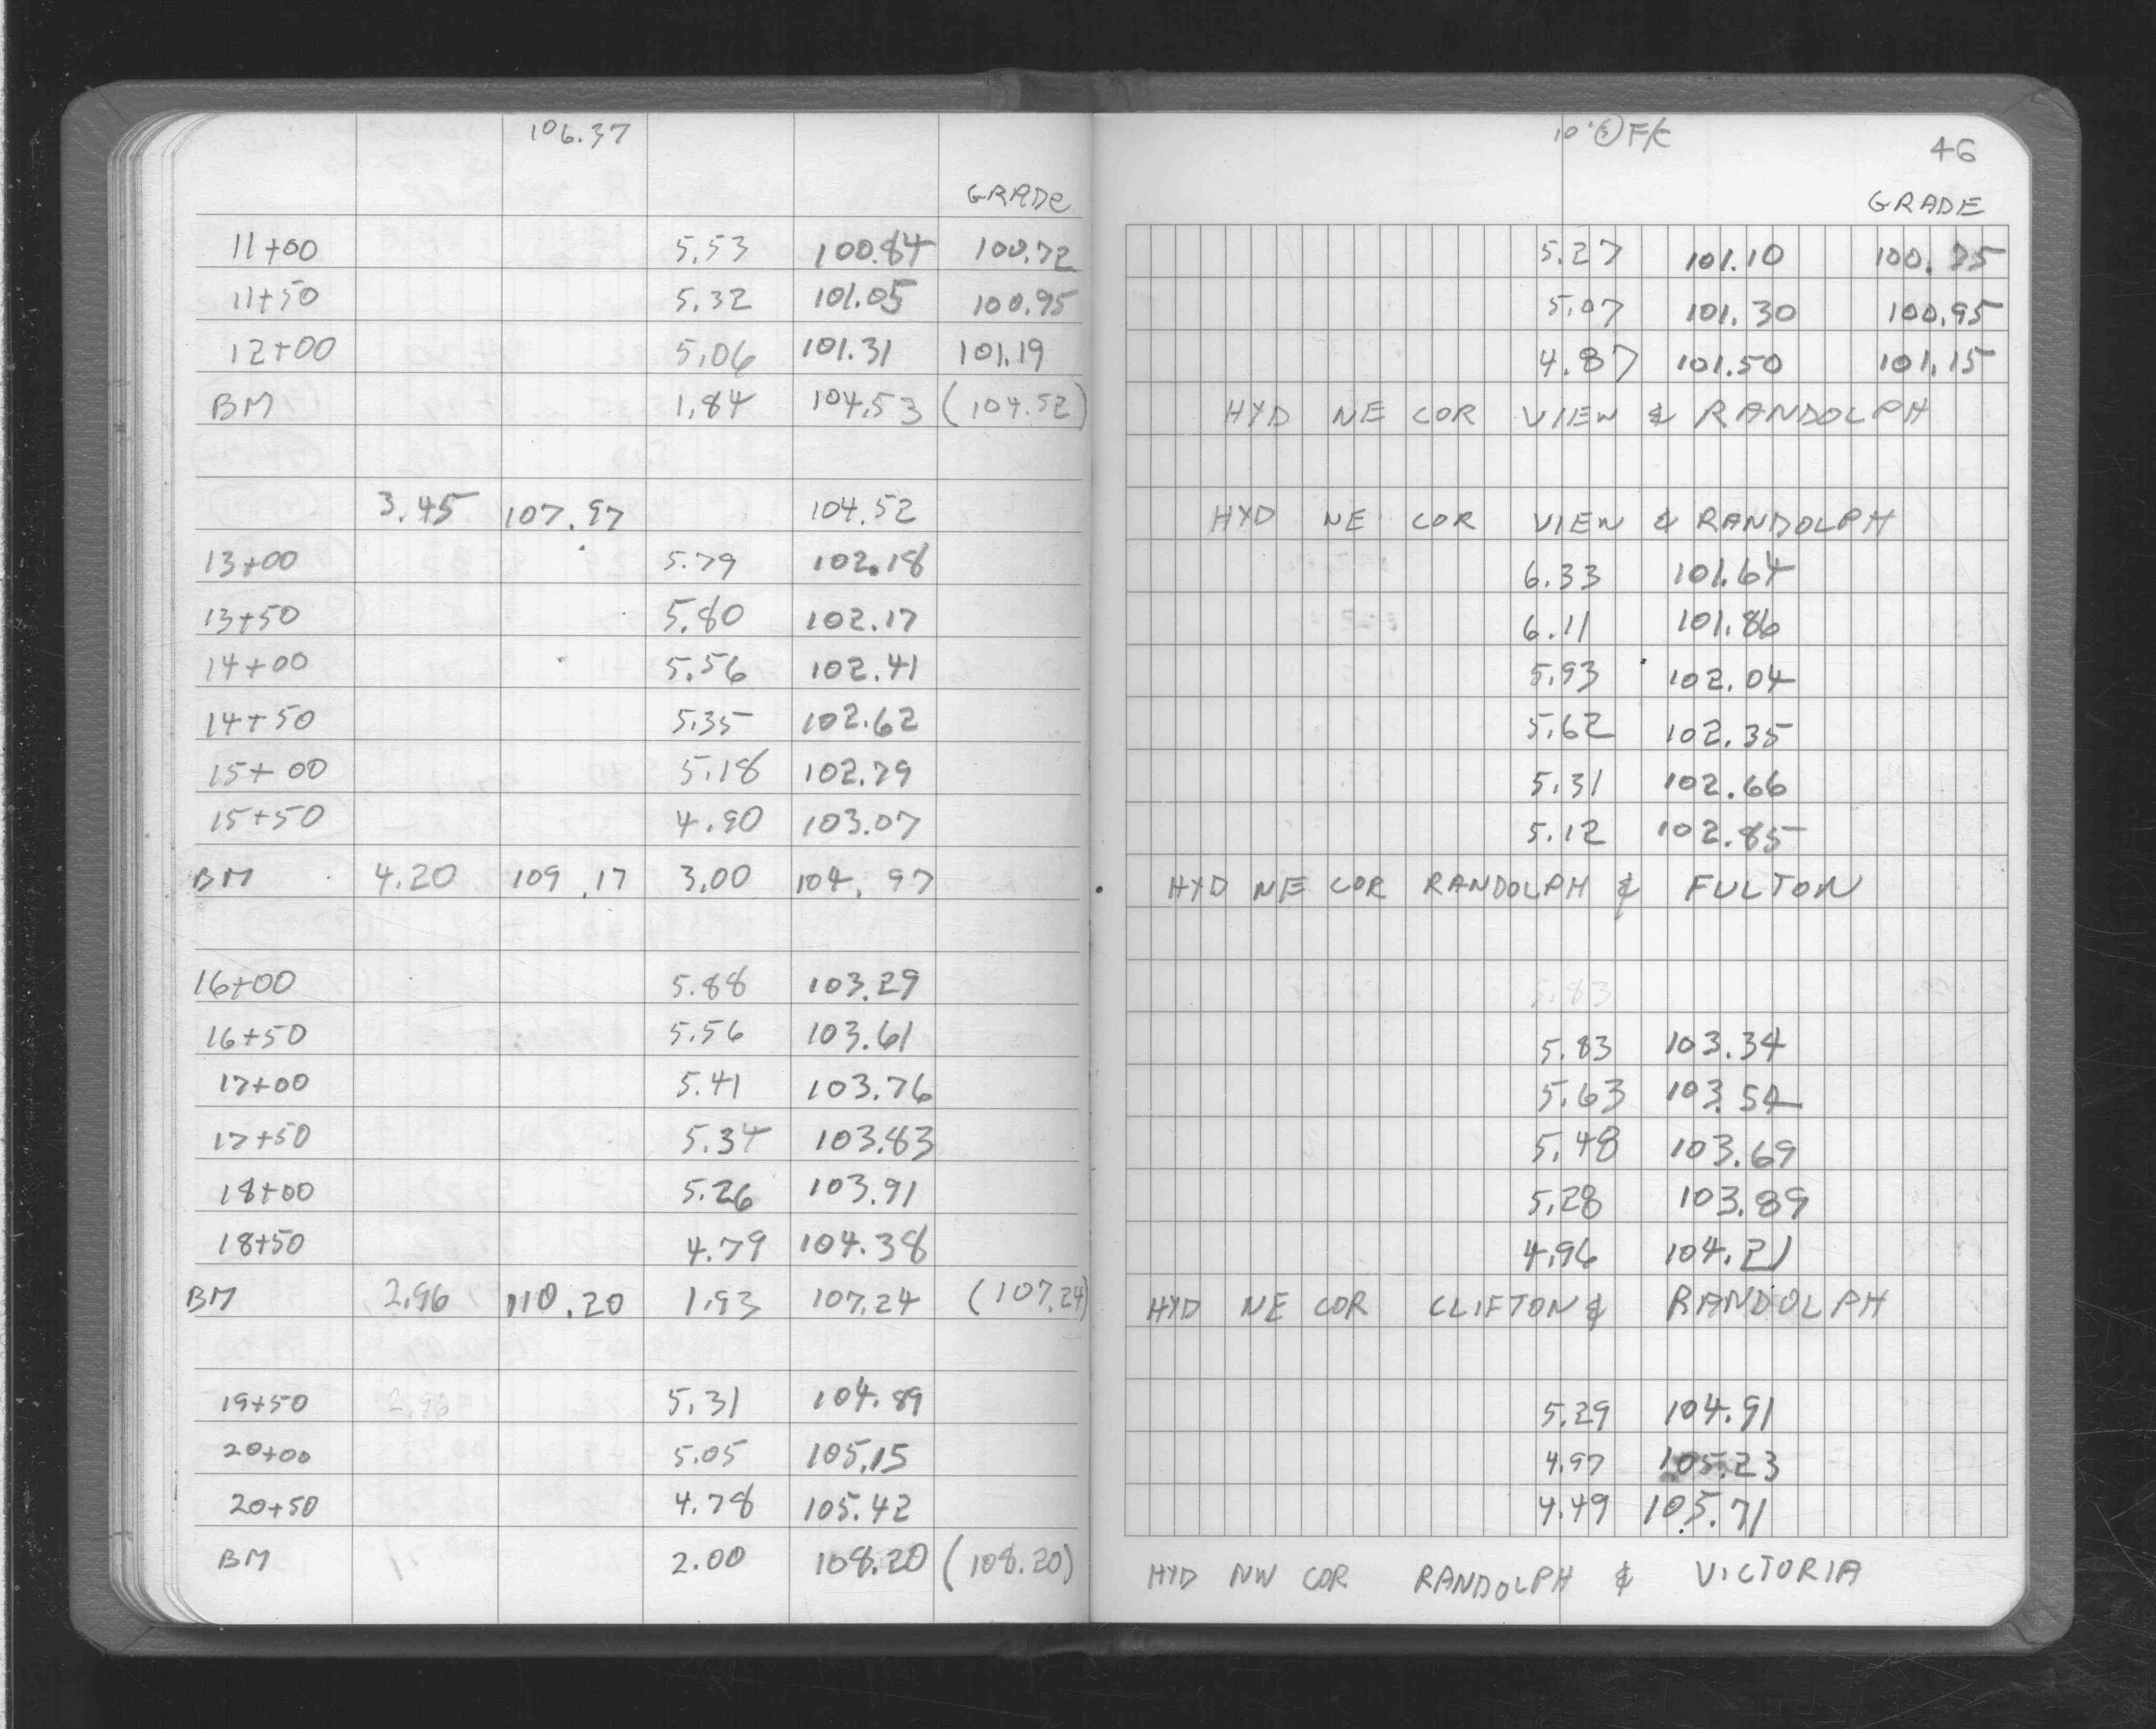 106.37
GRADE
11+00 5.53 100.84 100.72
11+50 5.32 101.05 100.95
12+00 5.06 101.31 101.19
BM 1.84 104.53 (104.52)
3.45 107.97 104.52
13+00 5.79 102.18
13+50 5.80 102.17
14+00 5.56 102.41
14+50 5.35 102.62
15+00 5.18 102.79
15+50 4.90 103.07
BM 4.20 109.17 3.00 104.97
16+00 5.88 103.29
16+50 5.56 103.61
17+00 5.41 103.76
17+50 5.34 103.83
18+00 5.26 103.91
18+50 4.79 104.38
BM 2.96 110.20 1.93 107.24 (107.24)
19+50 5.31 104.89
20+00 5.05 105.15
20+50 4.78 105.42
BM 2.00 108.20 (108.20)
46
GRADE
5.27 101.10 100.75
5.07 101.30 100.95
4.87 101.50 101.15
HYD NE COR VIEW & RANDOLPH
HYD NE COR VIEW & RANDOLPH
6.33 101.64
6.11 101.86
5.93 102.04
5.62 102.35
5.31 102.66
5.12 102.85
HYD NE COR RANDOLPH & FULTON
5.83 103.34
5.63 103.54
5.48 103.69
5.28 103.89
4.96 104.21
HYD NE COR CLIFTON & RANDOLPH
5.29 104.91
4.97 105.23
4.49 105.71
HYD NW COR RANDOLPH & VICTORIA